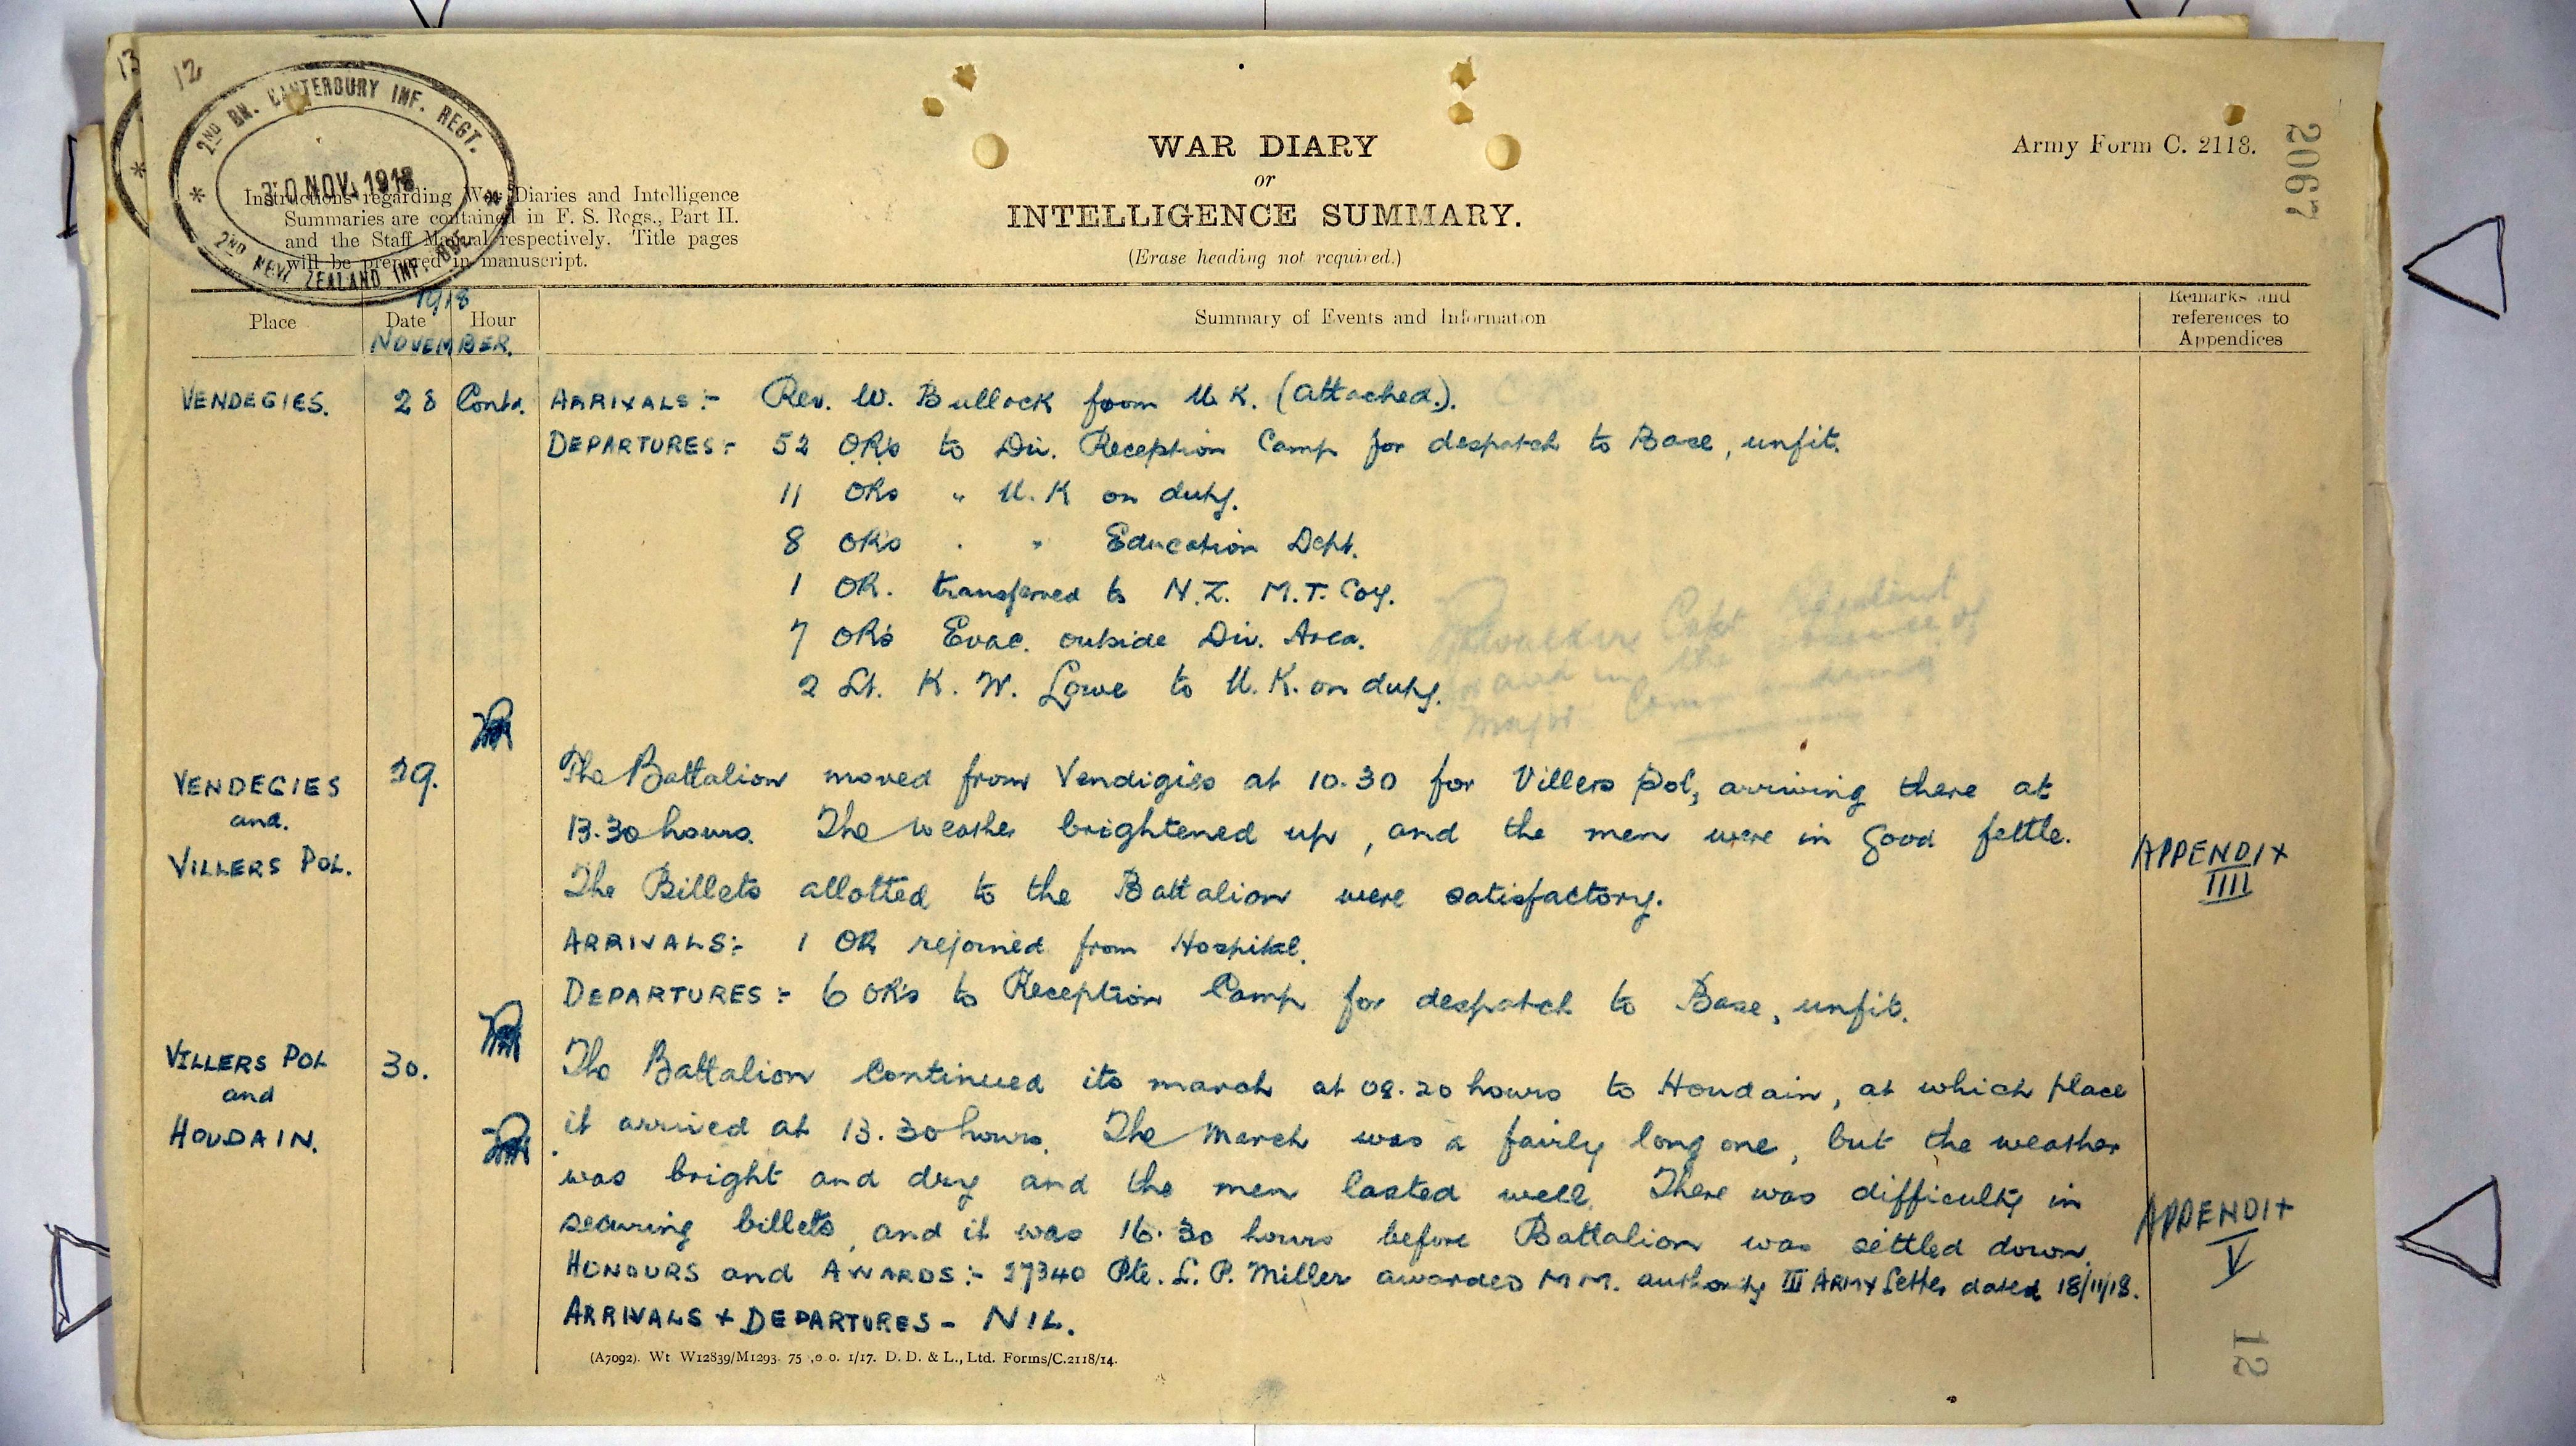 13
12
2ND BN. CANTERBURY INF. REGT.
30 NOV. 1918
2ND NEW ZEALAND INF. BDE.
Instructions regarding War Diaries and Intelligence
Summaries are contained in F. S. Regs., Part II.
and the Staff Manual respectively. Title pages
will be prepared in manuscript.
WAR DIARY
or
INTELLIGENCE SUMMARY.
(Erase heading not required.)
Army Form C. 2118.
2067
1918
Place Date Hour Summary of Events and Information Remarks and
references to
Appendices
NOVEMBER.
VENDEGIES. 28 Contd. ARRIVALS:- Rev. W. Bullock from U.K. (attached.).
DEPARTURES:- 52 ORs to Div. Reception Camp for despatch to Base, unfit.
11 ORs " U.K on duty.
8 ORs " " Education Dept.
1 OR. transferred to N.Z. M.T. Coy.
7 ORs Evac. outside Div. Area.
2 Lt. K. W. Lowe to U.K. on duty.
VENDEGIES 29. The Battalion moved from Vendigies at 10.30 for Villers Pol, arriving there at
and. 13.30 hours. The weather brightened up, and the men were in good fettle.
VILLERS POL. APPENDIX
IIII
The Billets allotted to the Battalion were satisfactory.
ARRIVALS:- 1 OR rejoined from Hospital.
DEPARTURES:- 6 ORs to Reception Camp for despatch to Base, unfit.
VILLERS POL 30. The Battalion continued its march at 08.20 hours to Houdain, at which place
and
HOUDAIN. it arrived at 13.30 hours. The march was a fairly long one, but the weather
was bright and dry and the men lasted well. There was difficulty in
securing billets, and it was 16.30 hours before Battalion was settled down. APPENDIX
V
HONOURS and AWARDS:- 27340 Pte. L. P. Miller awarded M M. authority III ARMY letter dated 18/11/18.
ARRIVALS + DEPARTURES - NIL.
(A7092). Wt W12839/M1293. 75 ,0 0. 1/17. D. D. & L., Ltd. Forms/C.2118/14.
12